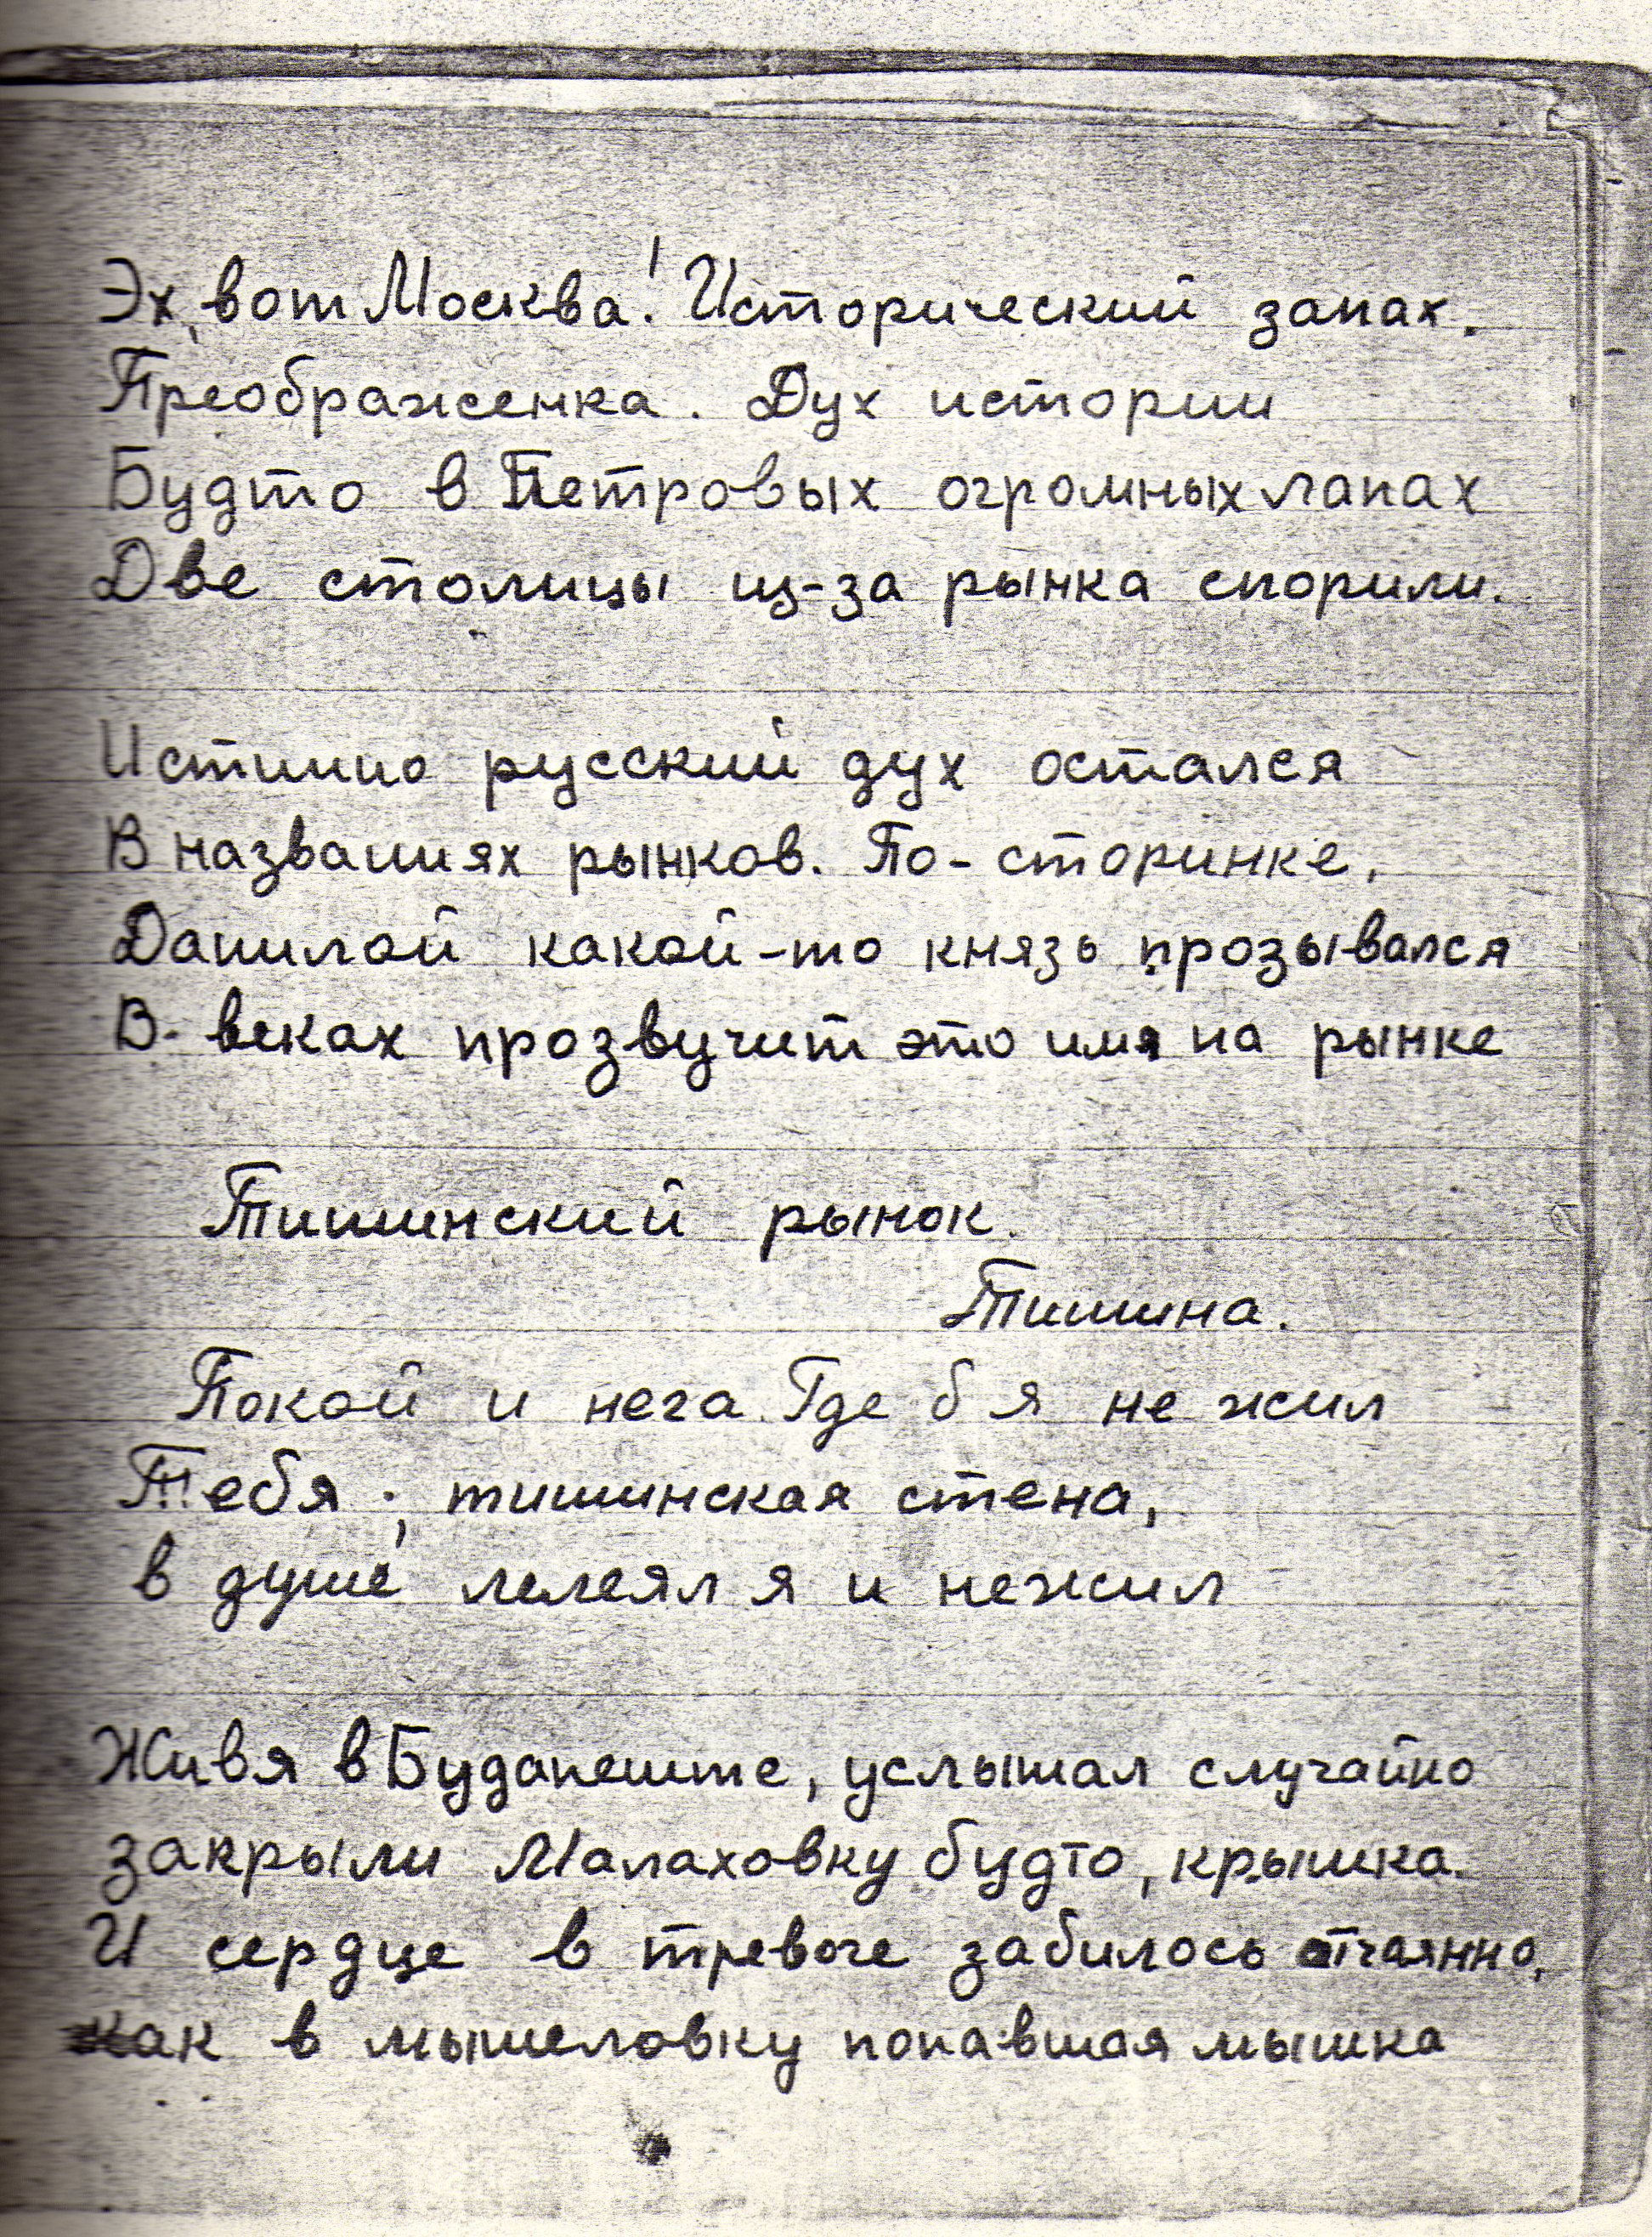 Эх, вот Москва! Исторический запах.
Преображенка. Дух истории
Будто в Петровых огромных лапах
Две столицы из-за рынка спорили.
Истинно русский дух остался
В названиях рынков. По-сторинке,
Данилой какой-то князь прозывался
В веках прозвучит это имя на рынке
Тишинский рынок.
Тишина.
Покой и нега. Где б я не жил
Тебя, тишинская стена,
в душе лелеял я и нежил
Живя в Будапеште, услышал случайно
закрыли Малаховку будто, крышка.
И сердце в тревоге забилось отчаянно,
как в мышеловку попавшая мышка